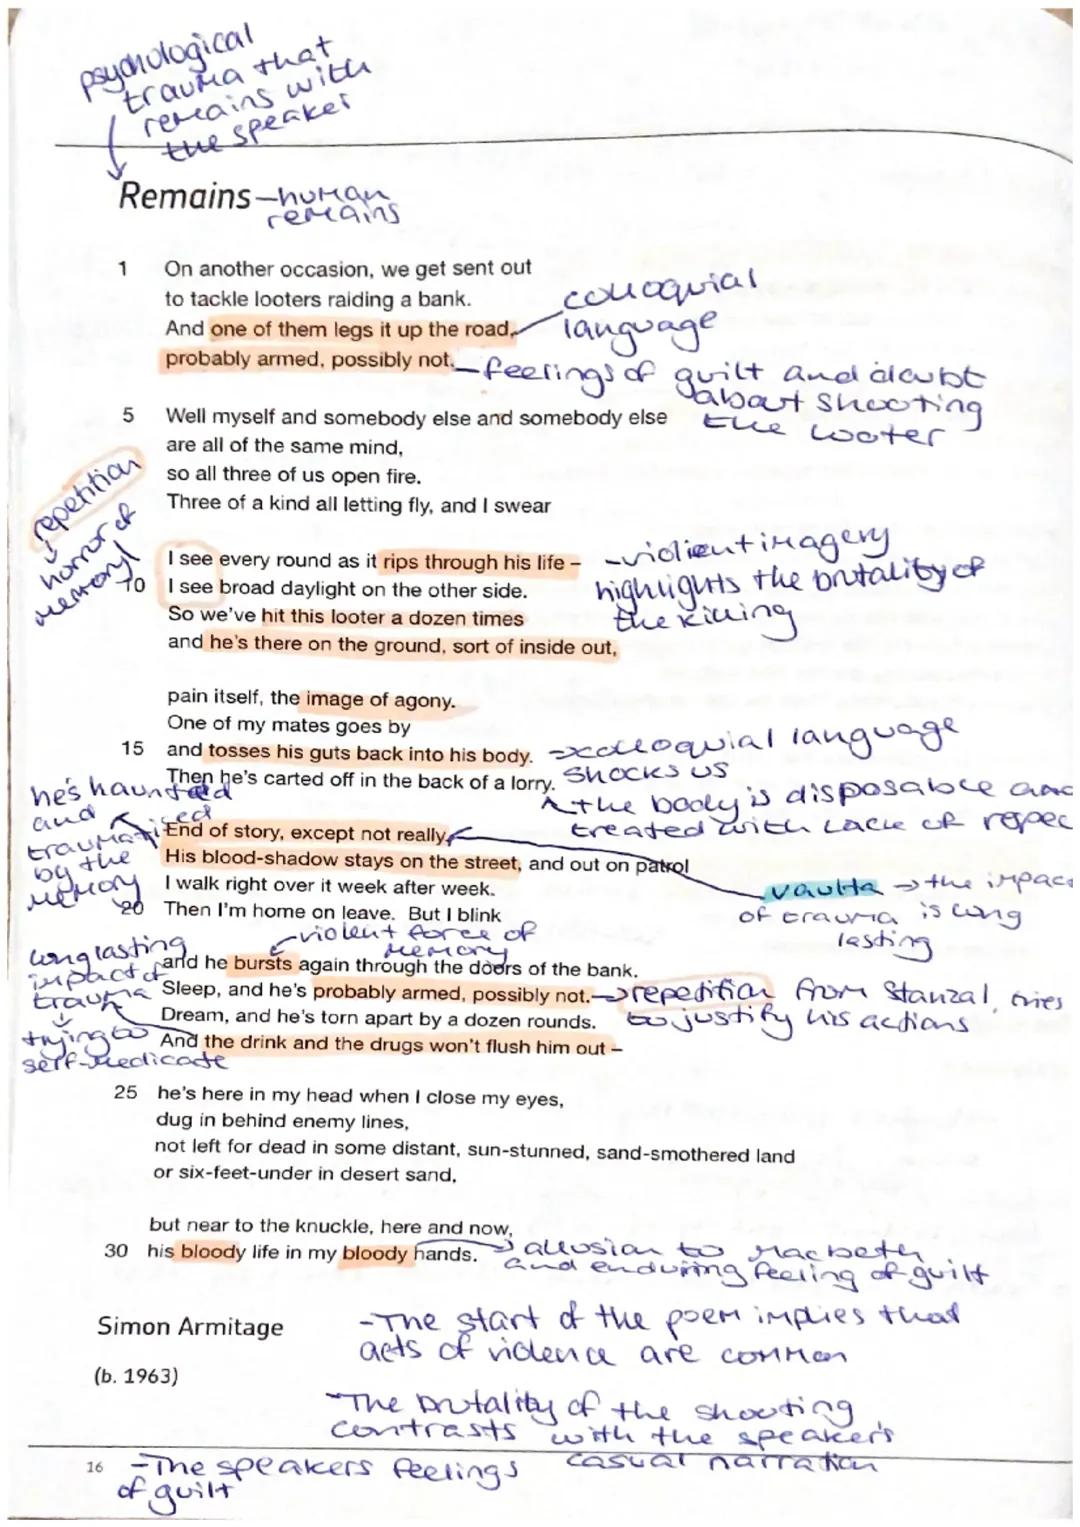 psychological
trauma that
remains with
the speaker
Remains - human
remains
1 On another occasion, we get sent out
to tackle looters raiding a bank.
And one of them legs it up the road,
probably armed, possibly not.
colloquial
language
- feelings of guilt and doubt
about shooting
the looter
5 Well myself and somebody else and somebody else
are all of the same mind,
so all three of us open fire.
Three of a kind all letting fly, and I swear
repetition
horror of
memory
I see every round as it rips through his life –
10 I see broad daylight on the other side.
So we've hit this looter a dozen times
and he's there on the ground, sort of inside out,
- violent imagery
highlights the brutality of
the killing
pain itself, the image of agony.
One of my mates goes by
15 and tosses his guts back into his body.
Then he's carted off in the back of a lorry.
colloquial language
shocks us
the body is disposable and
treated with lack of respec
he's haunted
and
traumatised
by the
memory
End of story, except not really.
His blood-shadow stays on the street, and out on patrol
I walk right over it week after week.
20 Then I'm home on leave. But I blink
vaulta → the impac
of trauma is long
lasting
violent force of
memory
and he bursts again through the doors of the bank.
Sleep, and he's probably armed, possibly not.
Dream, and he's torn apart by a dozen rounds.
And the drink and the drugs won't flush him out –
repetition from Stanza 1, tries
to justify his actions
long lasting
impact of
trauma
trying to
self-medicate
25 he's here in my head when I close my eyes,
dug in behind enemy lines,
not left for dead in some distant, sun-stunned, sand-smothered land
or six-feet-under in desert sand,
but near to the knuckle, here and now,
30 his bloody life in my bloody hands.
allusion to Macbeth
and enduring feeling of guilt
Simon Armitage
(b. 1963)
- The start of the poem implies that
acts of violence are common
- The brutality of the shooting
contrasts with the speakers
casual narration
16
- The speakers feelings
of guilt